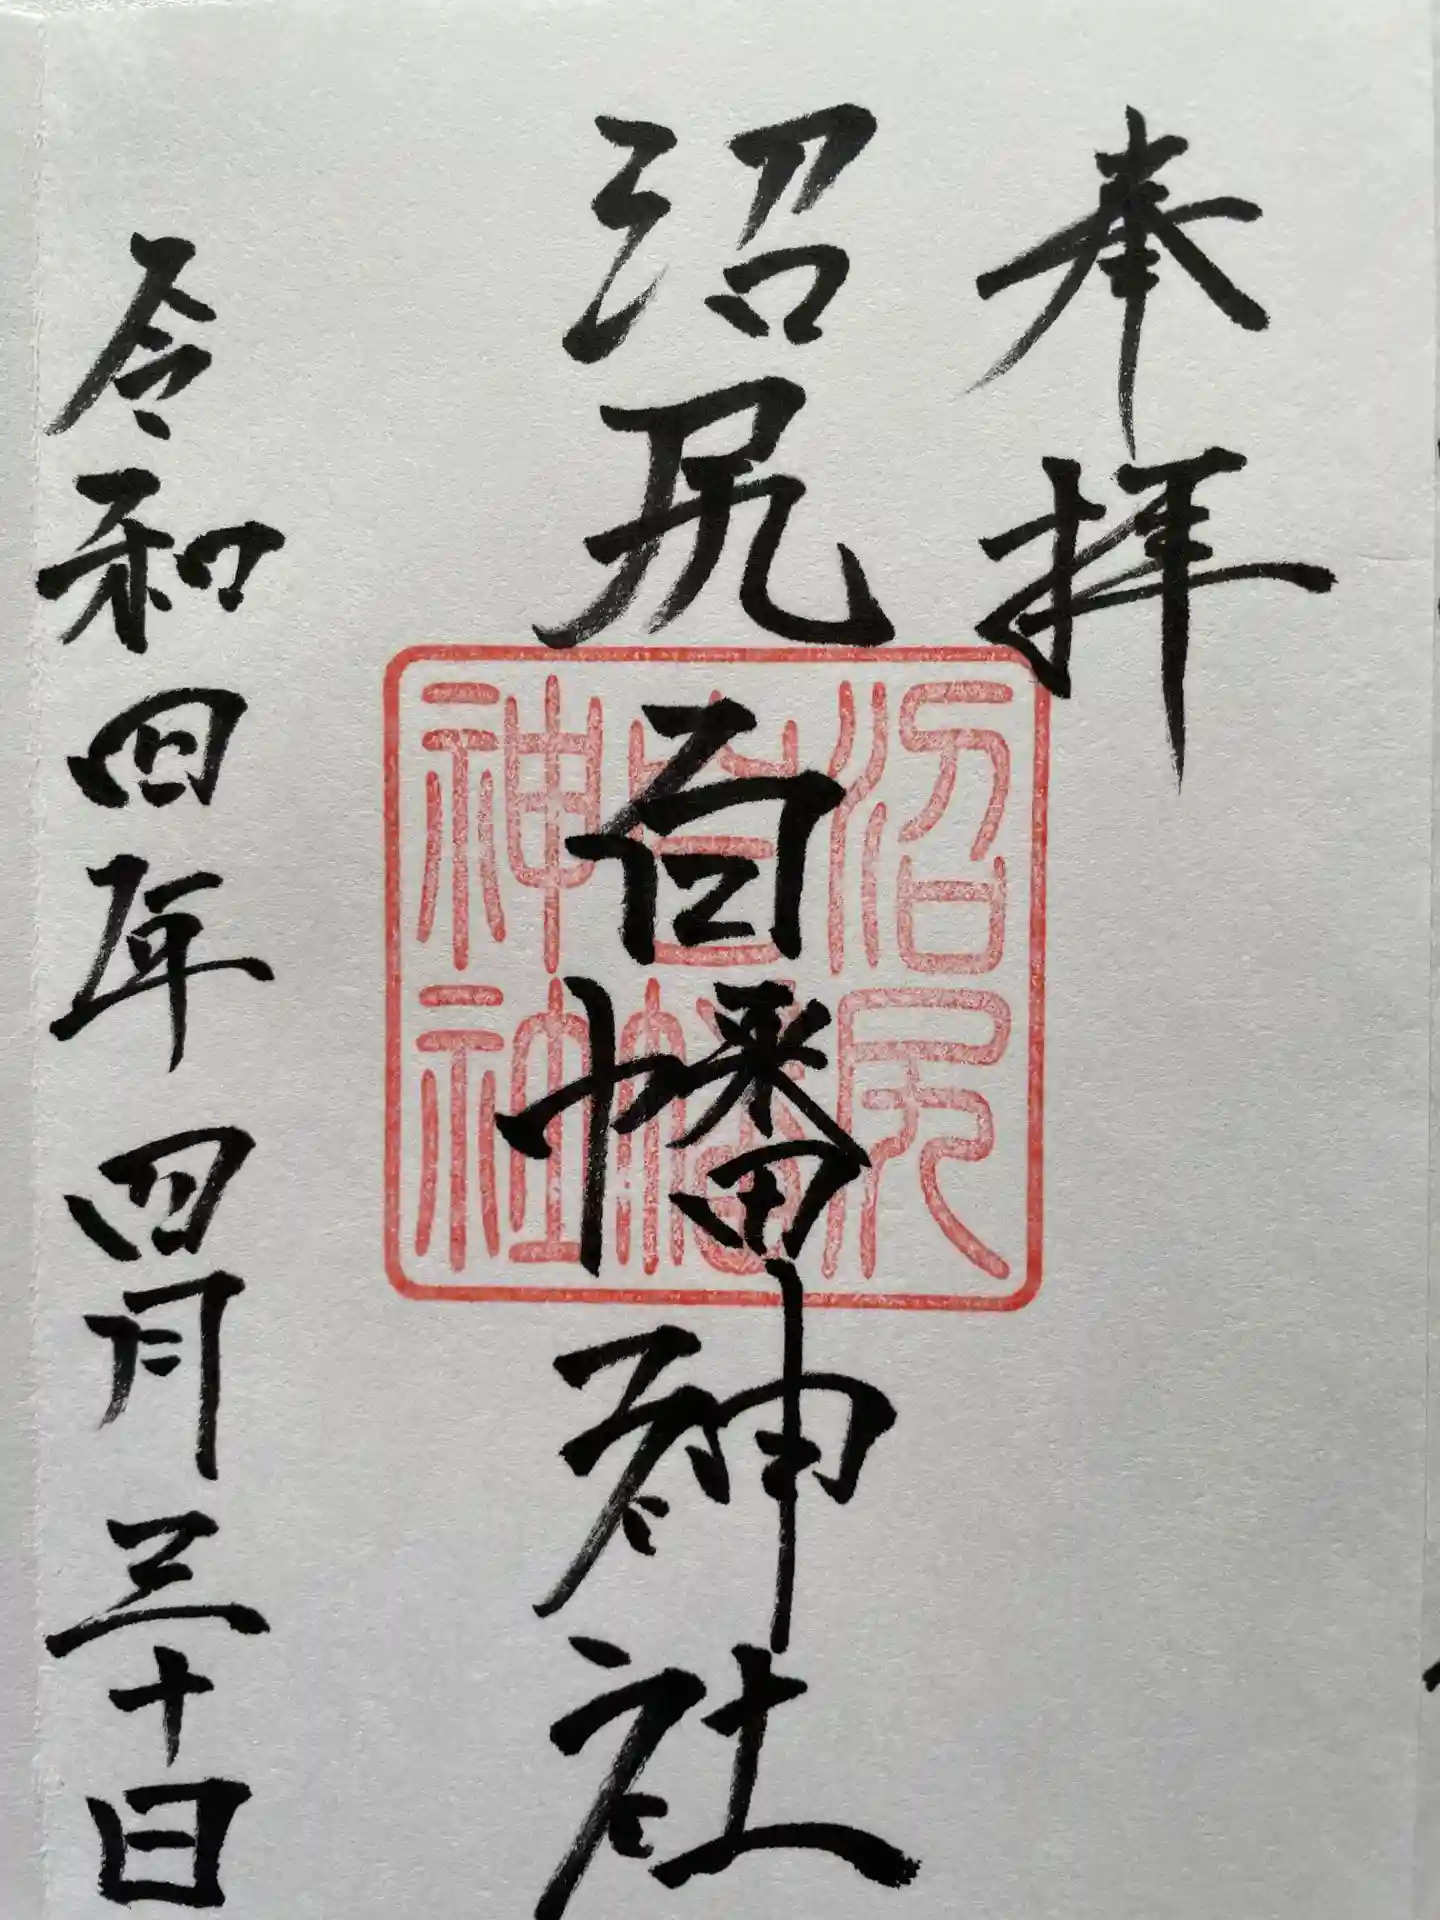 奉拝
沼尻百幡神社
沼尻
百幡
神社
令和四年四月三十日